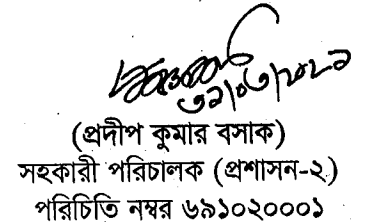 ৩১/০৩/২০২১
(প্রদীপ কুমার বসাক)
সহকারী পরিচালক (প্রশাসন-২)
পরিচিতি নম্বর ৬৯১০২০০০১